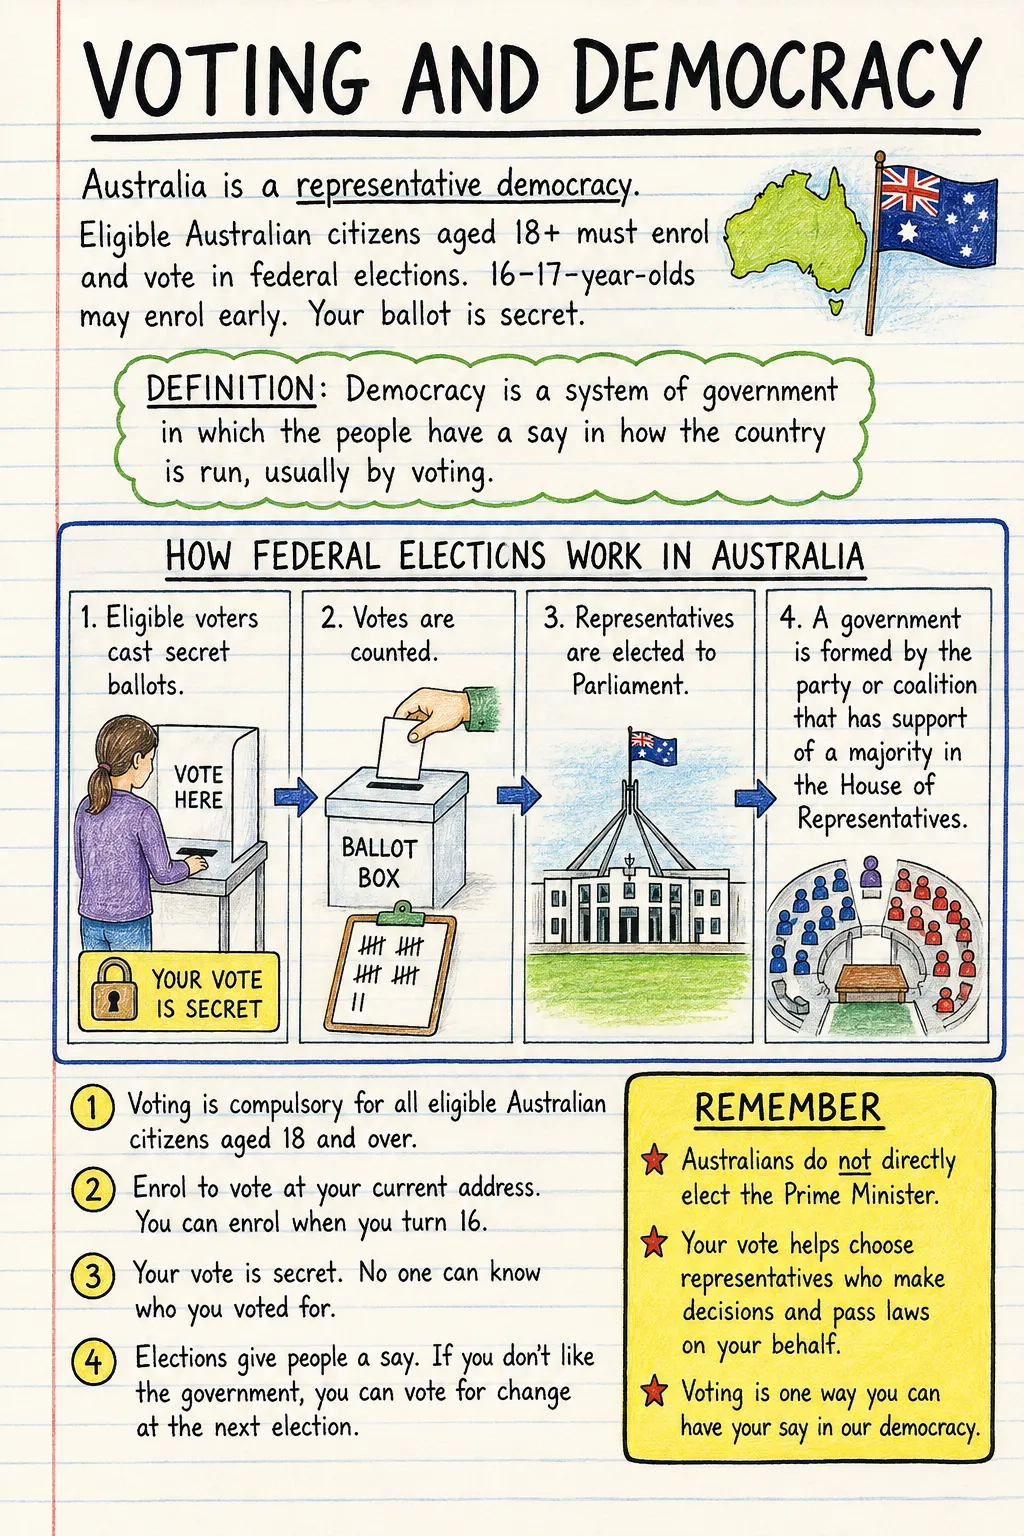 VOTING AND DEMOCRACY
Australia is a representative democracy.
Eligible Australian citizens aged 18+ must enrol
and vote in federal elections. 16-17-year-olds
may enrol early. Your ballot is secret.
DEFINITION: Democracy is a system of government
in which the people have a say in how the country
is run, usually by voting.
HOW FEDERAL ELECTICNS WORK IN AUSTRALIA
1. Eligible voters
cast secret
ballots.
VOTE
HERE
YOUR VOTE
IS SECRET
2. Votes are
counted.
BALLOT
BOX
3. Representatives
are elected to
Parliament.
4. A government
is formed by the
party or coalition
that has support
of a majority in
the House of
Representatives.
1 Voting is compulsory for all eligible Australian
citizens aged 18 and over.
2 Enrol to vote at your current address.
You can enrol when you turn 16.
3 Your vote is secret. No one can know
who you voted for.
4 Elections give people a say. If you don't like
the government, you can vote for change
at the next election.
REMEMBER
Australians do not directly
elect the Prime Minister.
Your vote helps choose
representatives who make
decisions and pass laws
on your behalf.
Voting is one way you can
have your say in our democracy.